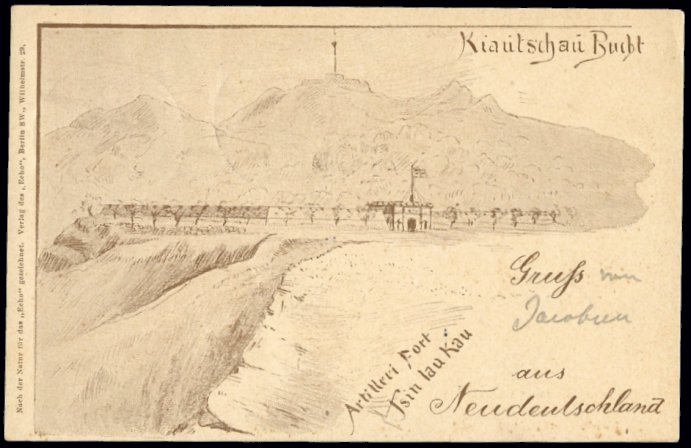 Kiautschau Bucht
Nach der Natur für das „Echo“ gezeichnet. Verlag des „Echo“, Berlin SW., Wilhelmstr. 29.
Gruss von
Jacobsen
Artillerie Fort
Tsin tau Kau
aus
Neudeutschland